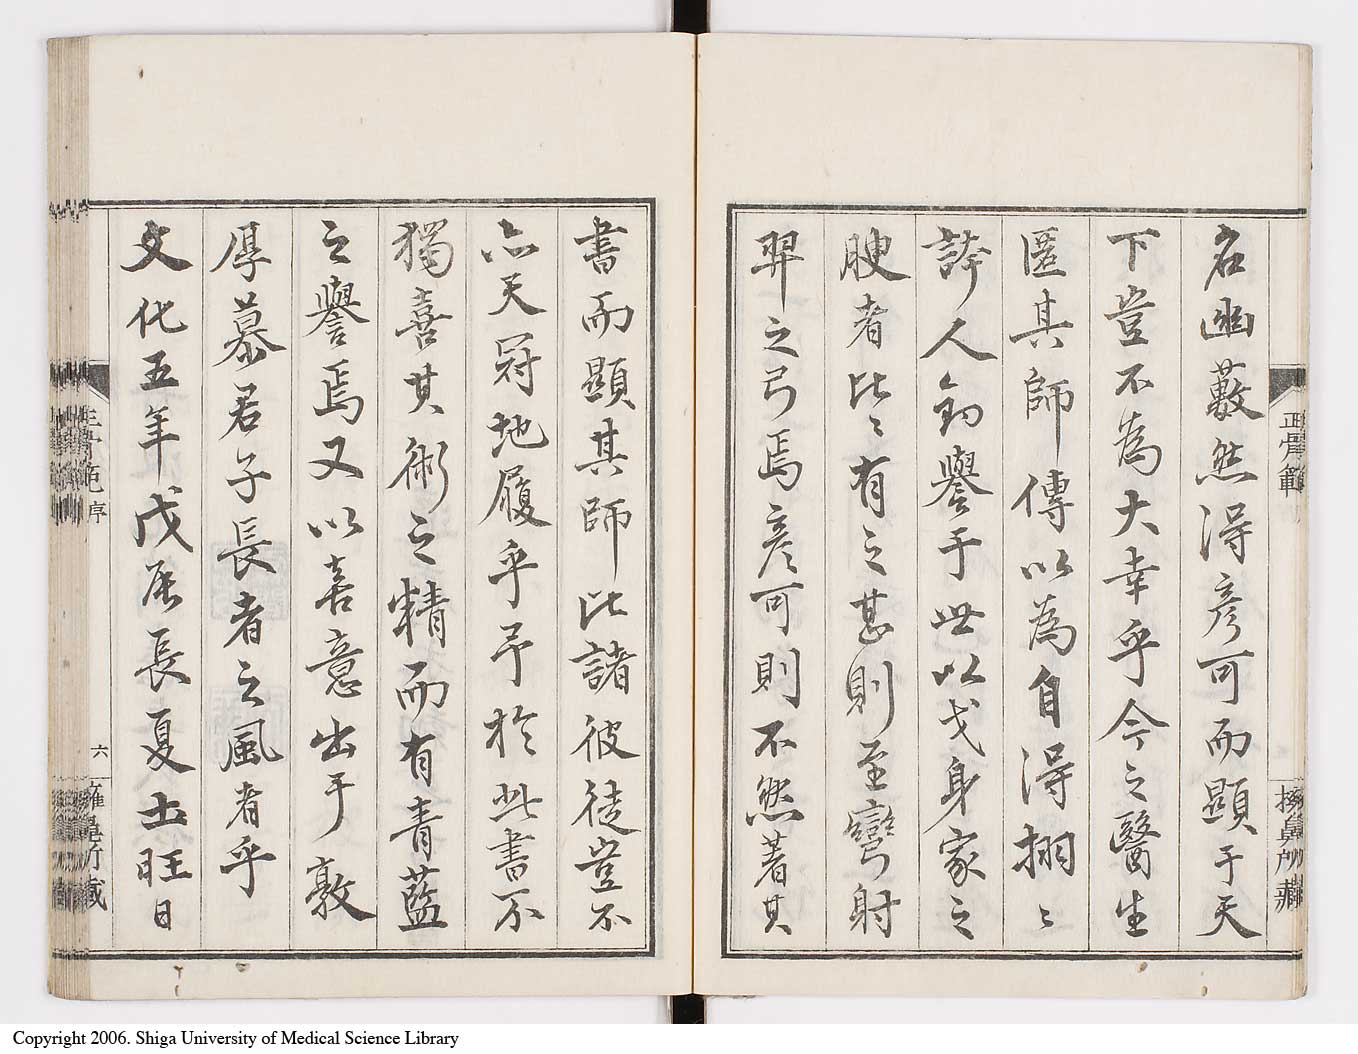 名幽藪然得彦可而顯于天
下豈不為大幸乎今之醫生
匿其師傳以為自得栩〻
誇人釣譽于世以戈身家之
腴者比〻有之甚則至彎射
羿之弓焉彦可則不然著其
書而顯其師比諸彼徒豈不
亦天冠地履乎予於此書不
獨喜其術之精而有青藍
之譽焉又以喜意出于敦
厚慕君子長者之風者乎
文化五年戊辰長夏土旺日
正骨範
序
六
Copyright 2006. Shiga University of Medical Science Library